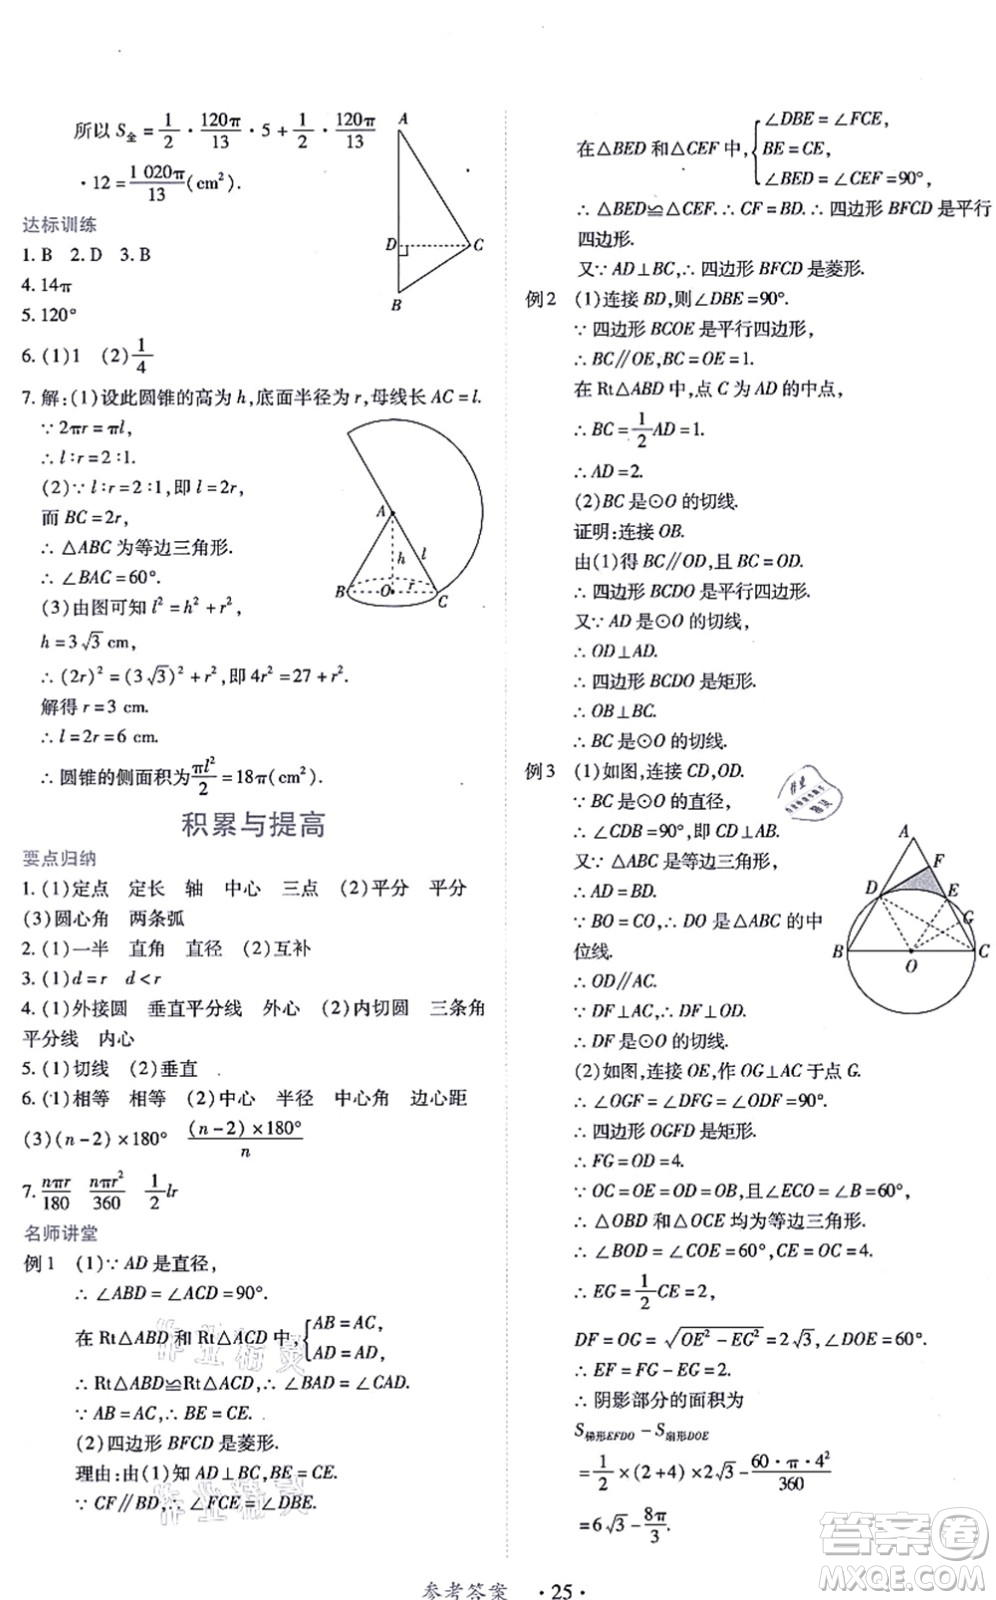 所以 S全 = 1/2 · 120π/13 · 5 + 1/2 · 120π/13
· 12 = 1 020π/13 (cm²).
达标训练
1. B 2. D 3. B
4. 14π
5. 120°
6. (1)1 (2)1/4
7. 解:(1)设此圆锥的高为 h,底面半径为 r,母线长 AC = l.
∵ 2πr = πl,
∴ l∶r = 2∶1.
(2)∵ l∶r = 2∶1,即 l = 2r,
而 BC = 2r,
∴ △ABC 为等边三角形.
∴ ∠BAC = 60°.
(3)由图可知 l² = h² + r²,
h = 3√3 cm,
∴ (2r)² = (3√3)² + r²,即 4r² = 27 + r².
解得 r = 3 cm.
∴ l = 2r = 6 cm.
∴ 圆锥的侧面积为 πl²/2 = 18π(cm²).
A
D
C
B
A
h
l
B
O
r
C
积累与提高
要点归纳
1. (1)定点 定长 轴 中心 三点 (2)平分 平分
(3)圆心角 两条弧
2. (1)一半 直角 直径 (2)互补
3. (1)d = r d < r
4. (1)外接圆 垂直平分线 外心 (2)内切圆 三条角
平分线 内心
5. (1)切线 (2)垂直
6. (1)相等 相等 (2)中心 半径 中心角 边心距
(3)(n − 2) × 180° (n − 2) × 180°/n
7. nπr/180 nπr²/360 1/2 lr
名师讲堂
例 1 (1)∵ AD 是直径,
∴ ∠ABD = ∠ACD = 90°.
在 Rt△ABD 和 Rt△ACD 中,{AB = AC,
AD = AD,
∴ Rt△ABD≌Rt△ACD,∴ ∠BAD = ∠CAD.
∵ AB = AC,∴ BE = CE.
(2)四边形 BFCD 是菱形.
理由:由(1)知 AD⊥BC,BE = CE.
∵ CF∥BD,∴ ∠FCE = ∠DBE.
在△BED 和△CEF 中,{∠DBE = ∠FCE,
BE = CE,
∠BED = ∠CEF = 90°,
∴ △BED≌△CEF. ∴ CF = BD. ∴ 四边形 BFCD 是平行
四边形.
又∵ AD⊥BC,∴ 四边形 BFCD 是菱形.
例 2 (1)连接 BD,则∠DBE = 90°.
∵ 四边形 BCOE 是平行四边形,
∴ BC∥OE,BC = OE = 1.
在 Rt△ABD 中,点 C 为 AD 的中点,
∴ BC = 1/2 AD = 1.
∴ AD = 2.
(2)BC 是⊙O 的切线.
证明:连接 OB.
由(1)得 BC∥OD,且 BC = OD.
∴ 四边形 BCDO 是平行四边形.
又∵ AD 是⊙O 的切线,
∴ OD⊥AD.
∴ 四边形 BCDO 是矩形.
∴ OB⊥BC.
∴ BC 是⊙O 的切线.
例 3 (1)如图,连接 CD,OD.
∵ BC 是⊙O 的直径,
∴ ∠CDB = 90°,即 CD⊥AB.
又∵ △ABC 是等边三角形,
∴ AD = BD.
∵ BO = CO,∴ DO 是△ABC 的中
位线.
∴ OD∥AC.
∵ DF⊥AC,∴ DF⊥OD.
∴ DF 是⊙O 的切线.
A
F
D
E
G
B
O
C
(2)如图,连接 OE,作 OG⊥AC 于点 G.
∴ ∠OGF = ∠DFG = ∠ODF = 90°.
∴ 四边形 OGFD 是矩形.
∴ FG = OD = 4.
∵ OC = OE = OD = OB,且∠ECO = ∠B = 60°,
∴ △OBD 和△OCE 均为等边三角形.
∴ ∠BOD = ∠COE = 60°,CE = OC = 4.
∴ EG = 1/2 CE = 2,
DF = OG = √(OE² − EG²) = 2√3,∠DOE = 60°.
∴ EF = FG − EG = 2.
∴ 阴影部分的面积为
S梯形EFDO − S扇形DOE
= 1/2 × (2 + 4) × 2√3 − 60 · π · 4²/360
= 6√3 − 8π/3.
参考答案 · 25 ·
答案卷
MXQE.COM
作业精灵
作业精灵